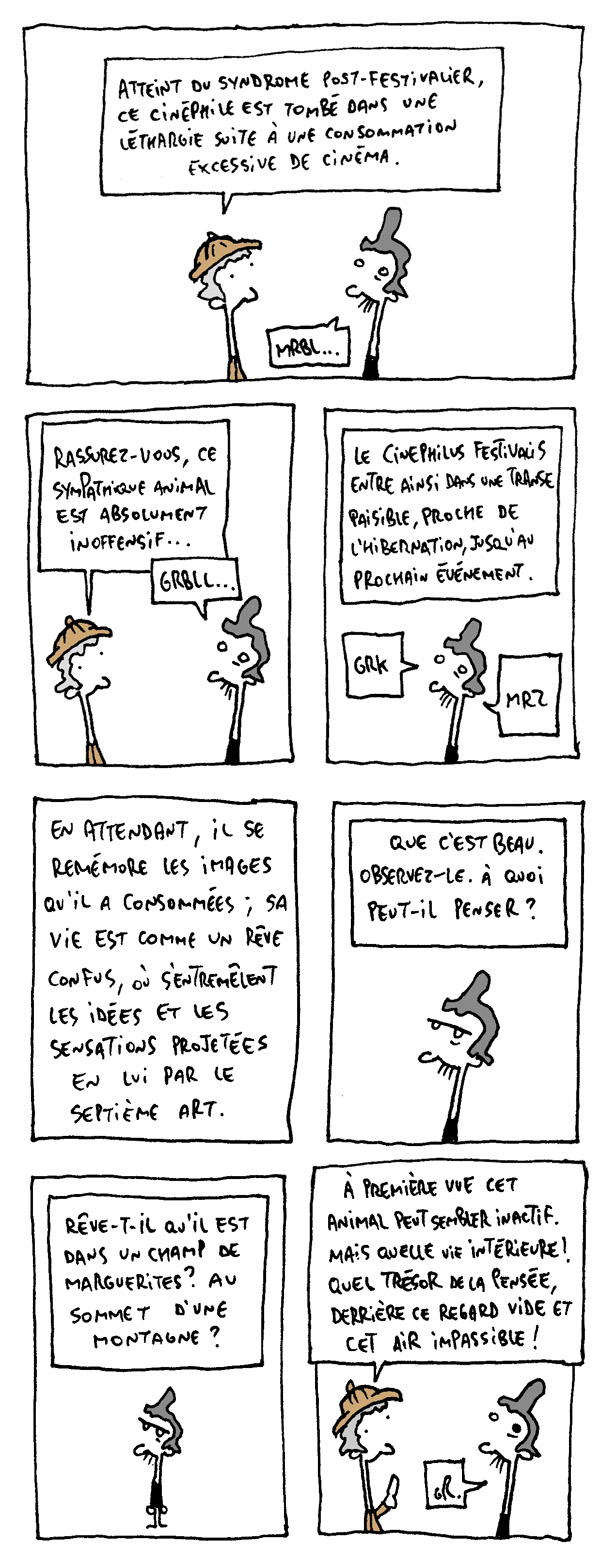 ATTEINT DU SYNDROME POST-FESTIVALIER,
CE CINÉPHILE EST TOMBÉ DANS UNE
LÉTHARGIE SUITE À UNE CONSOMMATION
EXCESSIVE DE CINÉMA.
MRBL...
RASSUREZ-VOUS, CE
SYMPATHIQUE ANIMAL
EST ABSOLUMENT
INOFFENSIF...
GRBLL...
LE CINEPHILUS FESTIVALIS
ENTRE AINSI DANS UNE TRANSE
PAISIBLE, PROCHE DE
L'HIBERNATION, JUSQU'AU
PROCHAIN ÉVÉNEMENT.
GRK
MRZ
EN ATTENDANT, IL SE
REMÉMORE LES IMAGES
QU'IL A CONSOMMÉES ; SA
VIE EST COMME UN RÊVE
CONFUS, OÙ S'ENTREMÊLENT
LES IDÉES ET LES
SENSATIONS PROJETÉES
EN LUI PAR LE
SEPTIÈME ART.
QUE C'EST BEAU.
OBSERVEZ-LE. À QUOI
PEUT-IL PENSER ?
RÊVE-T-IL QU'IL EST
DANS UN CHAMP DE
MARGUERITES ? AU
SOMMET D'UNE
MONTAGNE ?
À PREMIÈRE VUE CET
ANIMAL PEUT SEMBLER INACTIF.
MAIS QUELLE VIE INTÉRIEURE !
QUEL TRÉSOR DE LA PENSÉE,
DERRIÈRE CE REGARD VIDE ET
CET AIR IMPASSIBLE !
GR.